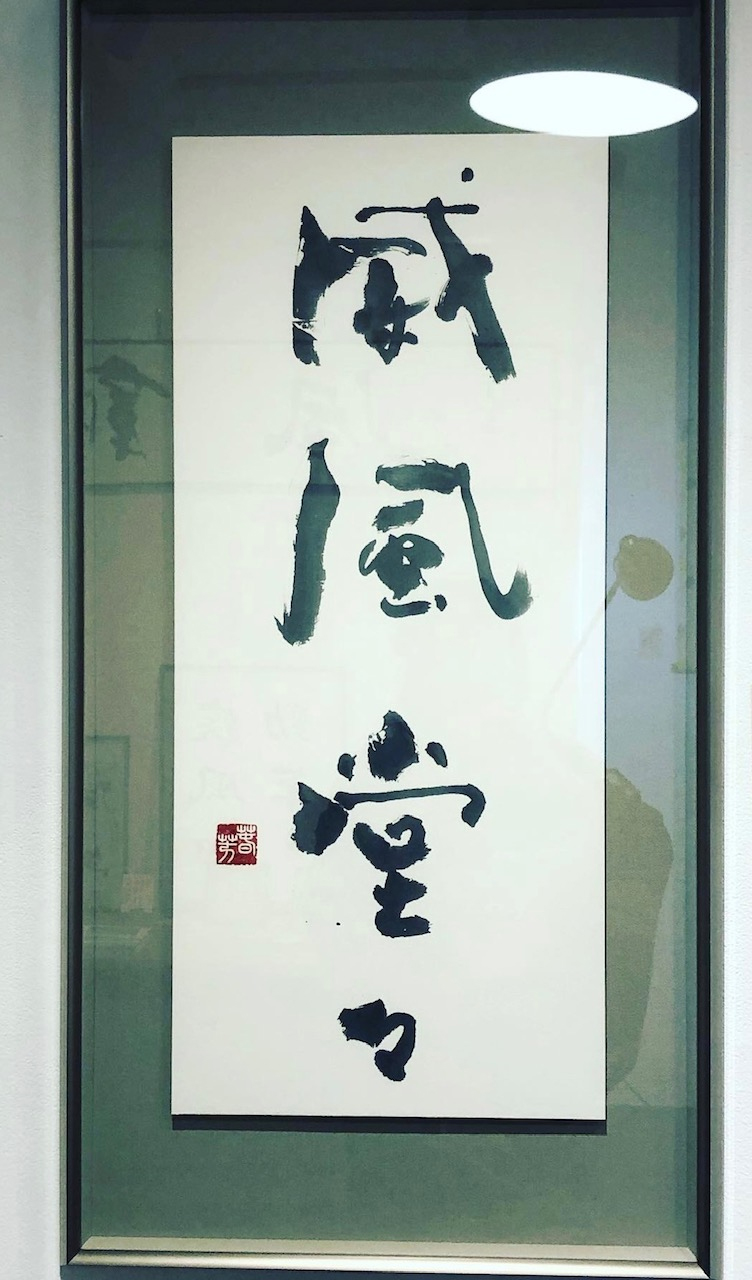 威風堂々
春芳